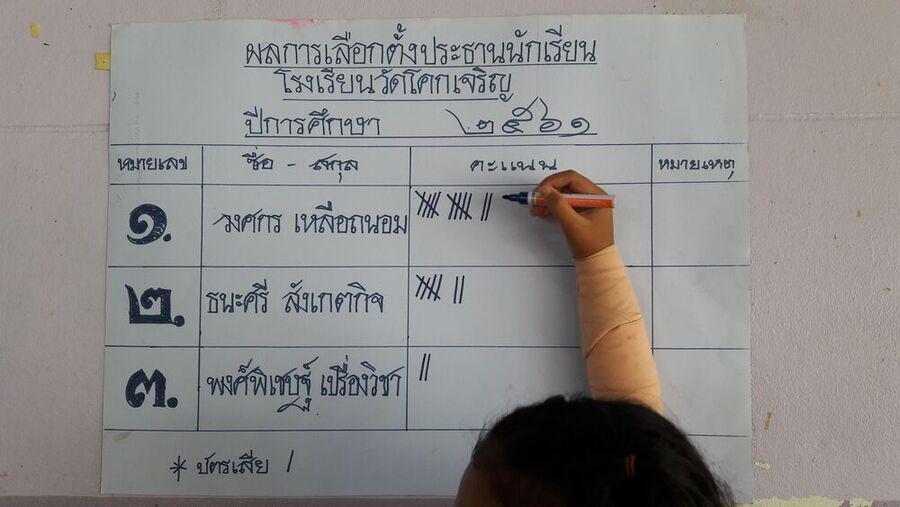 ผลการเลือกตั้งประธานนักเรียน
โรงเรียนวัดโคกเจริญ
ปีการศึกษา ๒๕๖๑
หมายเลข ชื่อ - สกุล คะแนน หมายเหตุ
๑. วงศกร เหลือถนอม
๒. ธนะศรี สังเกตกิจ
๓. พงศ์พิเชษฐ์ เปรื่องวิชา
* บัตรเสีย /